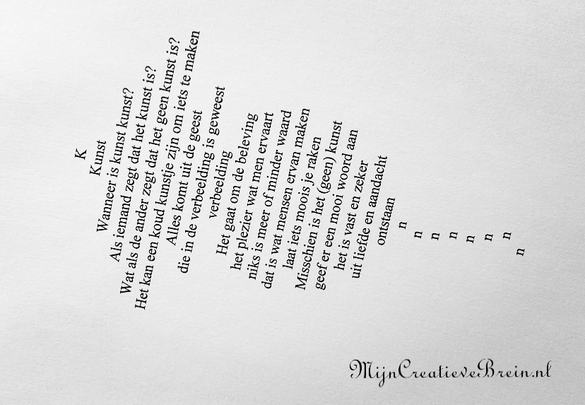 K
Kunst
Wanneer is kunst kunst?
Als iemand zegt dat het kunst is?
Wat als de ander zegt dat het geen kunst is?
Het kan een koud kunstje zijn om iets te maken
Alles komt uit de geest
die in de verbeelding is geweest
verbeelding
Het gaat om de beleving
het plezier wat men ervaart
niks is meer of minder waard
dat is wat mensen ervan maken
laat iets moois je raken
Misschien is het (geen) kunst
geef er een mooi woord aan
het is vast en zeker
uit liefde en aandacht
ontstaan
n
n
n
n
n
n
n
n
MijnCreatieveBrein.nl